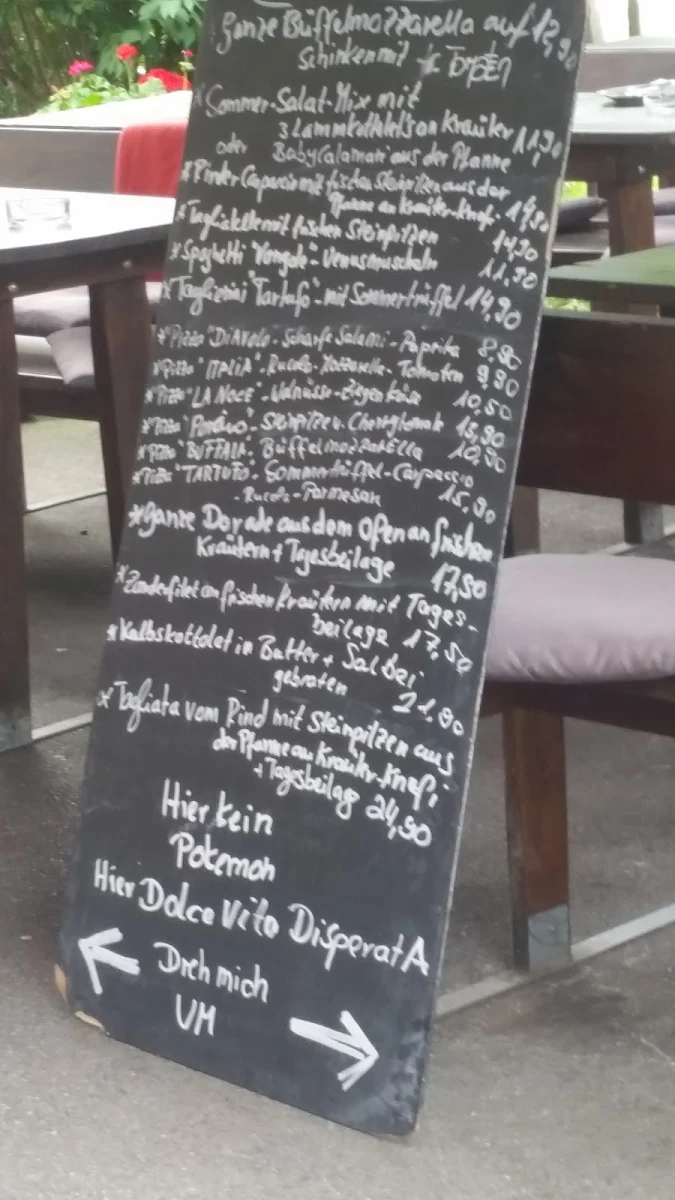 Ganze Büffelmozzarella auf 12,90
Schinken mit
* Sommer-Salat-Mix mit
3 Lammkottelets an Kräuter 11,90
oder Baby Calamari aus der Pfanne
* Rinder Carpaccio mit frischen Steinpilzen aus der
Pfanne an Kräuter-Knof.
* Tagliatelle mit frischen Steinpilzen 14,90
* Spaghetti "Vongole"- Venusmuscheln 11,90
* Taglierini "Tartufo"- mit Sommertrüffel 14,90
* Pizza "DiAvolo- Scharfe Salami - Paprika 8,90
* Pizza "ITALIA"- Rucola-Mozzarella- Tomaten 9,90
* Pizza "LA NOCE"- Walnüsse-Ziegenkäse 10,50
* Pizza - Steinpilzen 13,90
* Pizza "BUFFALA". Büffelmozzarella 10,90
* Pizza "TARTUFO". Sommertrüffel-Carpaccio
-Rucola-Parmesan 15,90
* Ganze Dorade aus dem Ofen an frischen
Kräutern + Tagesbeilage 17,50
* Zanderfilet an frischen Kräutern mit Tages-
beilage 17,50
* Kalbskottelet in Butter + Salbei
gebraten 21,90
* Tagliata vom Rind mit Steinpilzen aus
der Pfanne an Kräuter-Knofi
+ Tagesbeilage 24,50
Hier kein
Pokemon
Hier Dolce Vita DisperatA
Dreh mich
UM